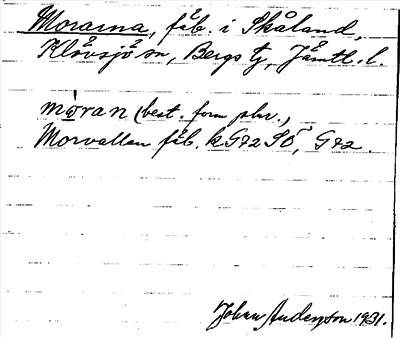 Morarna, fäb. i Skåland,
Klövsjö sn, Bergs tg, Jämtl. l.
mǫran (best. form plur.,)
Morvallen fäb. kG72SÖ, G72.
Johan Anderson 1931.